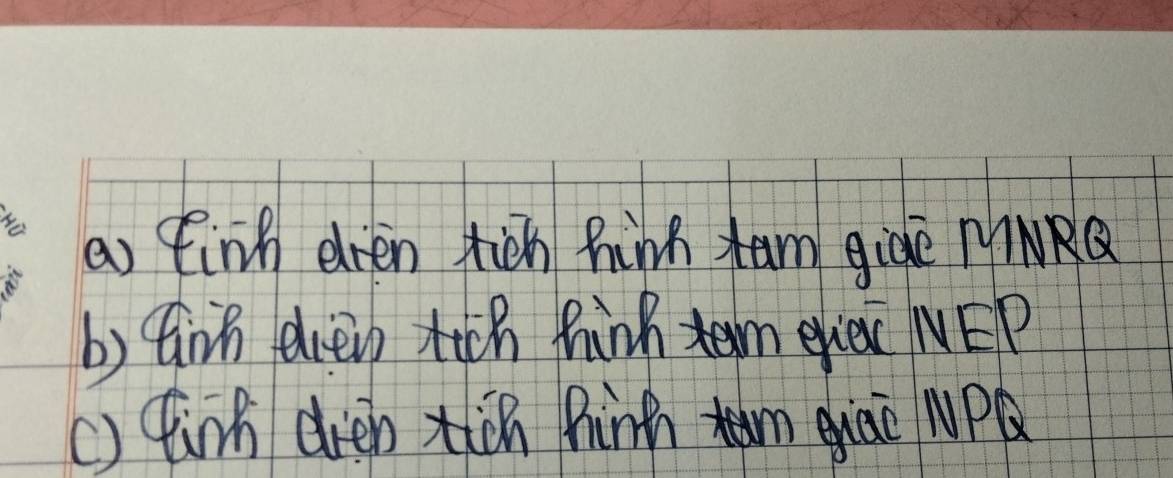 a) Tính diện tích hình tam giác MNRQ
b) Tính diện tích hình tam giác NEP
c) Tính diện tích hình tam giác NPQ